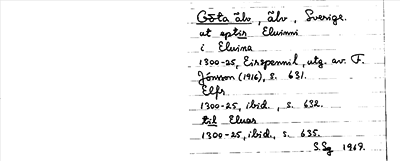 Göta älv, älv, Sverige.
at eptir Eluinni
i Eluina
1300-25, Eirspennil, utg. av. F.
Jónsson (1916), s. 631.
Elfr
1300-25, ibid., s. 632.
til Eluar
1300-25, ibid., s. 635.
S.Sg 1969.